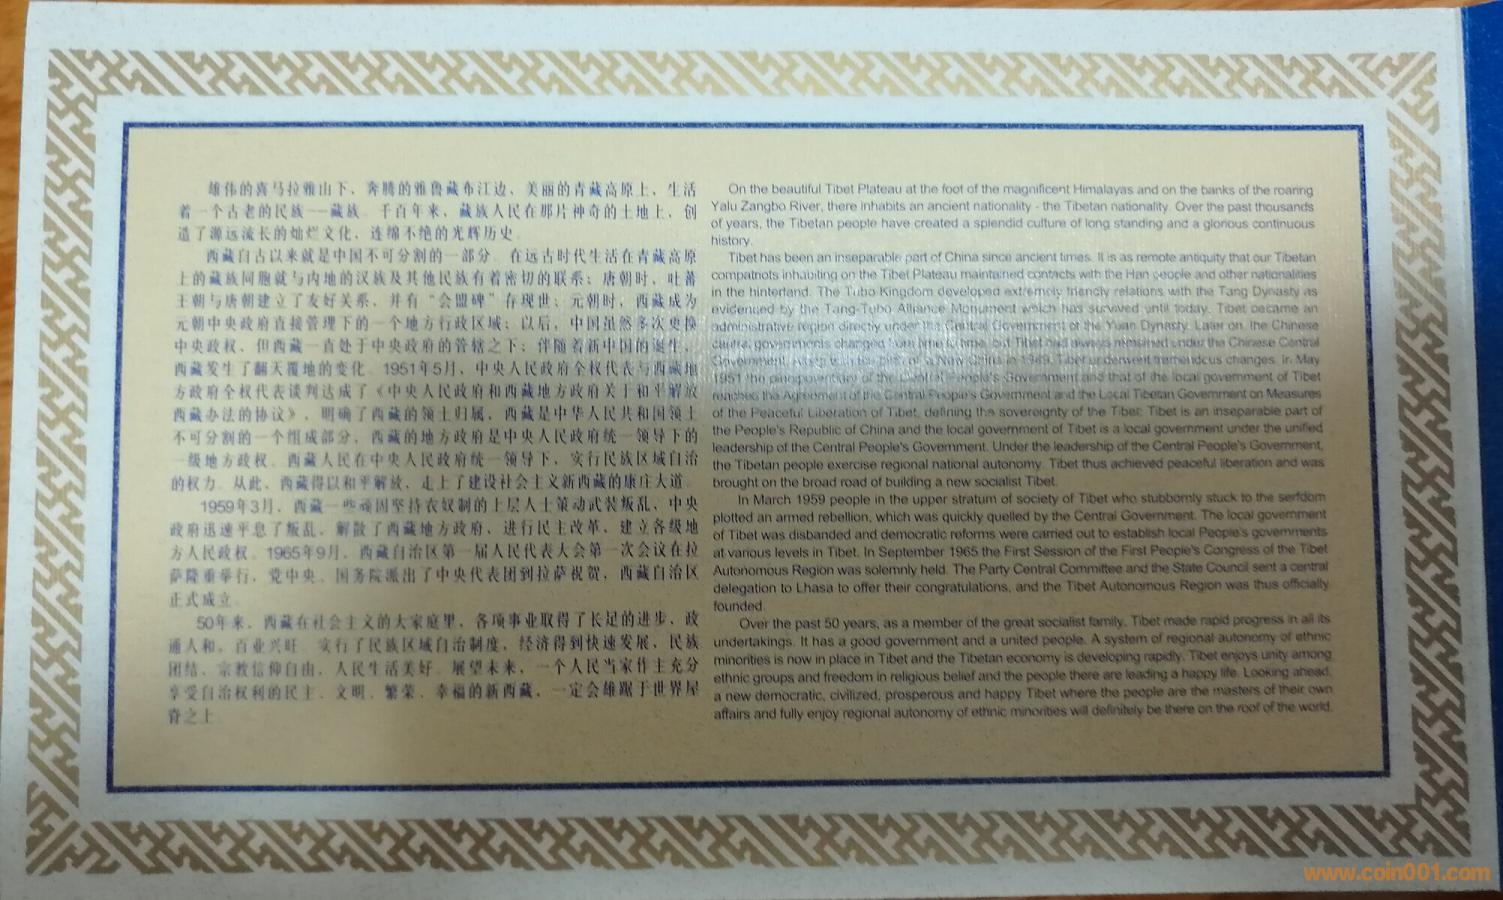 雄伟的喜马拉雅山下、奔腾的雅鲁藏布江边、美丽的青藏高原上、生活
着一个古老的民族——藏族。千百年来，藏族人民在那片神奇的土地上，创
造了源远流长的灿烂文化、连绵不绝的光辉历史。
西藏自古以来就是中国不可分割的一部分。在远古时代生活在青藏高原
上的藏族同胞就与内地的汉族及其他民族有着密切的联系；唐朝时，吐蕃
王朝与唐朝建立了友好关系，并有“会盟碑”存现世；元朝时，西藏成为
元朝中央政府直接管理下的一个地方行政区域；以后，中国虽然多次更换
中央政权，但西藏一直处于中央政府的管辖之下；伴随着新中国的诞生，
西藏发生了翻天覆地的变化。1951年5月，中央人民政府全权代表与西藏地
方政府全权代表谈判达成了《中央人民政府和西藏地方政府关于和平解放
西藏办法的协议》，明确了西藏的领土归属，西藏是中华人民共和国领土
不可分割的一个组成部分，西藏的地方政府是中央人民政府统一领导下的
一级地方政权。西藏人民在中央人民政府统一领导下，实行民族区域自治
的权力。从此，西藏得以和平解放，走上了建设社会主义新西藏的康庄大道。
1959年3月，西藏一些顽固坚持农奴制的上层人士策动武装叛乱，中央
政府迅速平息了叛乱，解散了西藏地方政府，进行民主改革，建立各级地
方人民政权。1965年9月，西藏自治区第一届人民代表大会第一次会议在拉
萨隆重举行，党中央、国务院派出了中央代表团到拉萨祝贺，西藏自治区
正式成立。
50年来，西藏在社会主义的大家庭里，各项事业取得了长足的进步，政
通人和，百业兴旺。实行了民族区域自治制度，经济得到快速发展，民族
团结、宗教信仰自由，人民生活美好。展望未来，一个人民当家作主充分
享受自治权利的民主、文明、繁荣、幸福的新西藏，一定会雄踞于世界屋
脊之上。
On the beautiful Tibet Plateau at the foot of the magnificent Himalayas and on the banks of the roaring
Yalu Zangbo River, there inhabits an ancient nationality - the Tibetan nationality. Over the past thousands
of years, the Tibetan people have created a splendid culture of long standing and a glorious continuous
history.
Tibet has been an inseparable part of China since ancient times. It is as remote antiquity that our Tibetan
compatriots inhabiting on the Tibet Plateau maintained contacts with the Han people and other nationalities
in the hinterland. The Tubo Kingdom developed extremely friendly relations with the Tang Dynasty as
evidenced by the Tang-Tubo Alliance Monument which has survived until today. Tibet became an
administrative region directly under the Central Government of the Yuan Dynasty. Later on, the Chinese
central governments changed from time to time, but Tibet had always remained under the Chinese Central
Government. Along with the birth of a New China in 1949, Tibet underwent tremendous changes. In May
1951 the plenipotentiary of the Central People's Government and that of the local government of Tibet
reached the Agreement of the Central People's Government and the Local Tibetan Government on Measures
of the Peaceful Liberation of Tibet, defining the sovereignty of the Tibet: Tibet is an inseparable part of
the People's Republic of China and the local government of Tibet is a local government under the unified
leadership of the Central People's Government. Under the leadership of the Central People's Government,
the Tibetan people exercise regional national autonomy. Tibet thus achieved peaceful liberation and was
brought on the broad road of building a new socialist Tibet.
In March 1959 people in the upper stratum of society of Tibet who stubbornly stuck to the serfdom
plotted an armed rebellion, which was quickly quelled by the Central Government. The local government
of Tibet was disbanded and democratic reforms were carried out to establish local People's governments
at various levels in Tibet. In September 1965 the First Session of the First People's Congress of the Tibet
Autonomous Region was solemnly held. The Party Central Committee and the State Council sent a central
delegation to Lhasa to offer their congratulations, and the Tibet Autonomous Region was thus officially
founded.
Over the past 50 years, as a member of the great socialist family, Tibet made rapid progress in all its
undertakings. It has a good government and a united people. A system of regional autonomy of ethnic
minorities is now in place in Tibet and the Tibetan economy is developing rapidly. Tibet enjoys unity among
ethnic groups and freedom in religious belief and the people there are leading a happy life. Looking ahead,
a new democratic, civilized, prosperous and happy Tibet where the people are the masters of their own
affairs and fully enjoy regional autonomy of ethnic minorities will definitely be there on the roof of the world.
www.coin001.com